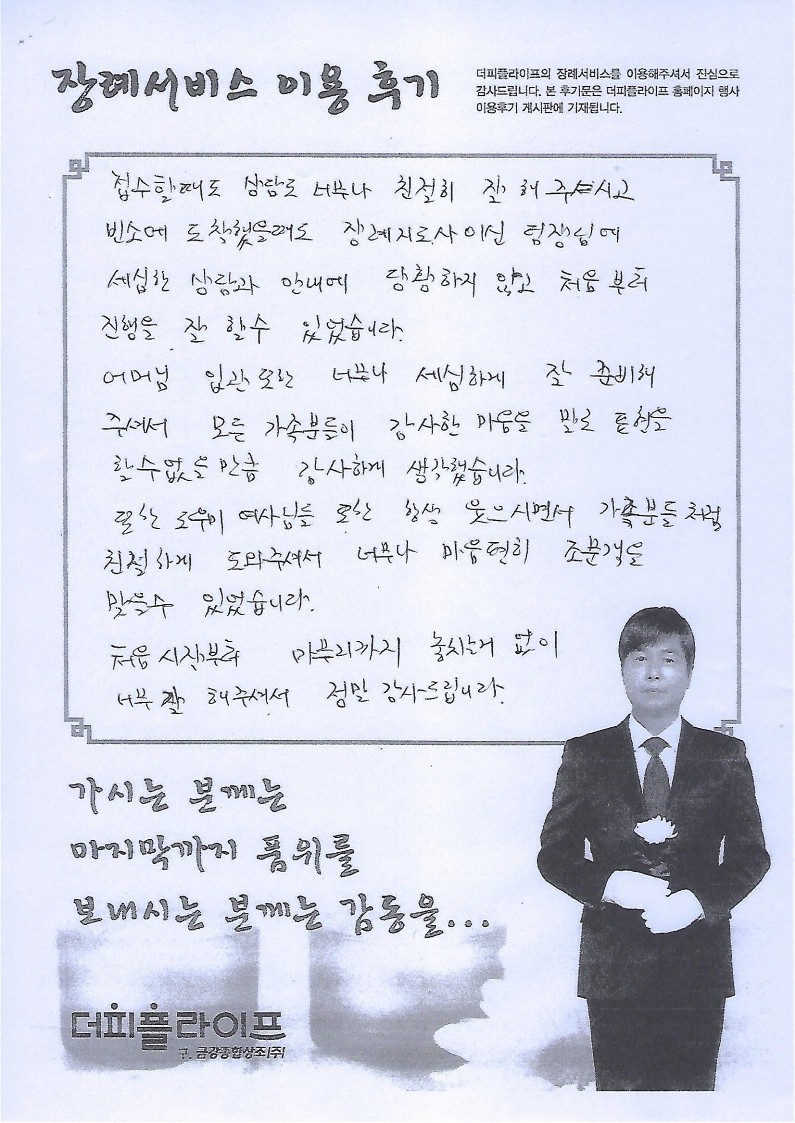 장례서비스 이용 후기
더피플라이프의 장례서비스를 이용해주셔서 진심으로
감사드립니다. 본 후기문은 더피플라이프 홈페이지 행사
이용후기 게시판에 기재됩니다.
접수할때도 상담도 너무나 친절히 잘 해 주시고
빈소에 도착했을때도 장례지도사이신 팀장님에
세심한 상담과 안내에 당황하지 않고 처음부터
진행을 잘 할수 있었습니다.
어머님 입관 또한 너무나 세심하게 잘 준비해
주셔서 모든 가족분들이 감사한 마음을 말로 표현을
할수없을 만큼 감사하게 생각했습니다.
또한 도우미 여사님들 또한 항상 웃으시면서 가족분들처럼
친절하게 도와주셔서 너무나 마음편히 조문객을
맞을수 있었습니다.
처음 시작부터 마무리까지 놓치는거 없이
너무 잘 해주셔서 정말 감사드립니다.
가시는 분께는
마지막까지 품위를
보내시는 분께는 감동을...
더피플라이프
구. 금강종합상조(주)